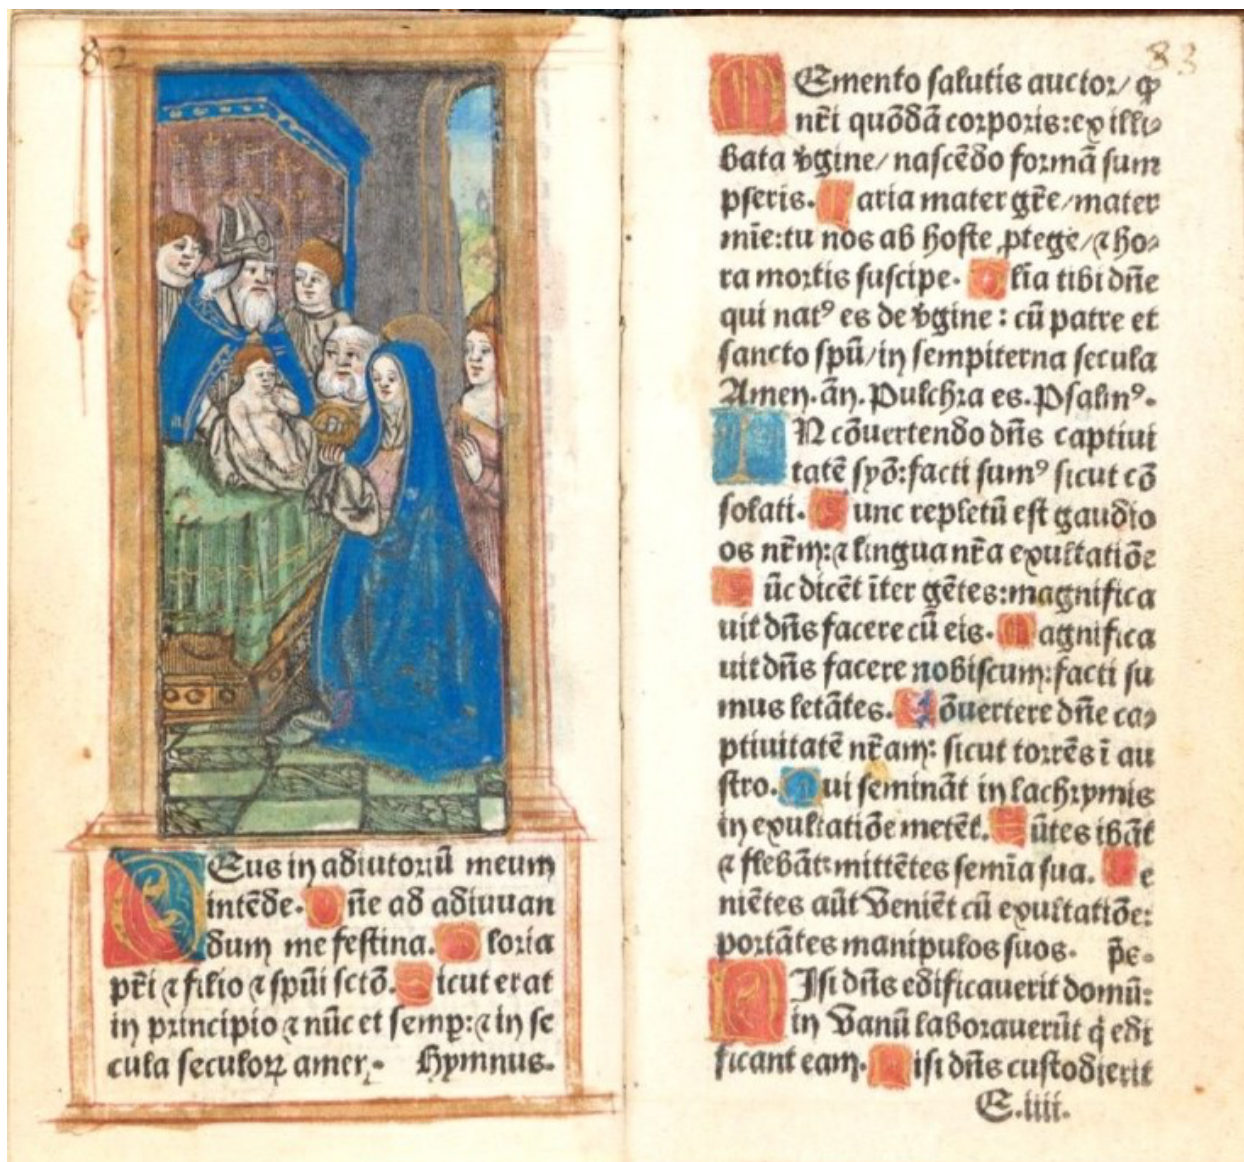 82
DEus in adiutoriũ meum
intẽde. Dñe ad adiuuan
dum me festina. Gloria
pr̃i ⁊ filio ⁊ spũi sctõ. Sicut erat
in principio ⁊ nũc et semp̱: ⁊ in se
cula seculoꝝ amen. Hymnus.
83
MEmento salutis auctor/ ꝙ
nr̃i quõdã corporis: ex illi⸗
bata v̾gine/ nascẽdo formã sum
pseris. Maria mater gr̃e/ mater
mĩe: tu nos ab hoste ꝓtege/ ⁊ ho⸗
ra mortis suscipe. Glĩa tibi dñe
qui natꝰ es de v̾gine : cũ patre et
sancto spũ/ in sempiterna secula
Amen. ãn. Pulchra es. Psalmꝰ.
IN cõuertendo dñs captiui
tatẽ syõ: facti sumꝰ sicut cõ
solati. Tunc repletũ est gaudio
os nr̃m: ⁊ lingua nr̃a exultatiõe
Tũc dicẽt ĩter gẽtes: magnifica
uit dñs facere cũ eis. Magnifica
uit dñs facere nobiscum: facti su
mus letãtes. Cõuertere dñe ca⸗
ptiuitatẽ nr̃am: sicut torrẽs ĩ au
stro. Qui seminãt in lachrymis
in exultatiõe metẽt. Eũtes ibãt
⁊ flebãt: mittẽtes semĩa sua. Ve
niẽtes aũt veniẽt cũ exultatiõe:
portãtes manipulos suos. p̃s.
NIsi dñs edificauerit domũ:
in vanũ laborauerũt q̇ edi
ficant eam. Nisi dñs custodierit
E.iiii.